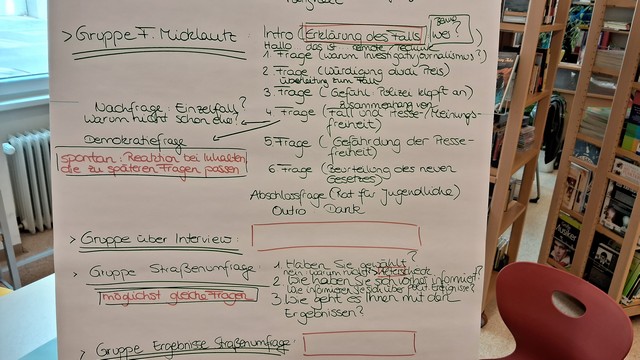 > Gruppe F. Micklautz :
Intro (Erklärung des Falls)
wer?
Hallo das ist Technik
1. Frage (warum Investigativjournalismus?)
2. Frage (Würdigung dwai Preis)
Überleitung zum Fall
3. Frage (Gefühl Polizei klopft an)
Zusammenhang von
4. Frage (Fall und Presse-/Meinungs-
freiheit)
Nachfrage: Einzelfall?
warum nicht schon eher?
Demokratiefrage
spontan: Reaktion bei Inhalten
die zu späteren Fragen passen
5 Frage (Gefährdung der Presse-
freiheit)
6 Frage (Beurteilung des neuen
Gesetzes)
Abschlussfrage (Rat für Jugendliche)
Outro Dank
> Gruppe über Interview:
> Gruppe Straßenumfrage:
möglichst gleiche Fragen
1. Haben Sie gewählt?
nein warum nicht >
2. Wie haben Sie sich vorher informiert?
Wie informieren Sie sich über polit. Ereignisse?
3 Wie geht es Ihnen mit den
Ergebnissen?
> Gruppe Ergebnisse Straßenumfrage: